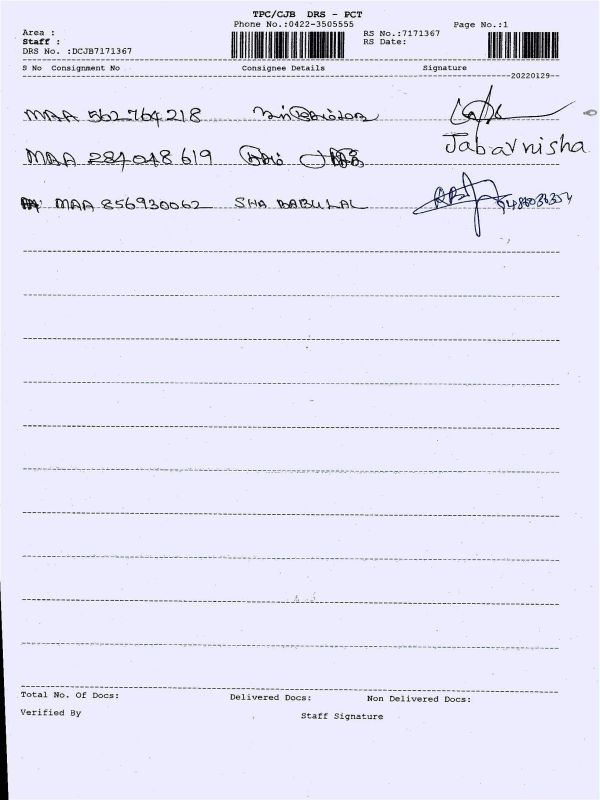 TPC/CJB DRS - PCT
Phone No.:0422-3505555 Page No.:1
Area :
RS No.:7171367
Staff :
RS Date:
DRS No. :DCJB7171367
S No Consignment No Consignee Details Signature
20220129
MAA 562764218
Jabarnisha
MAA 284048619
MAA 856930062 SHA BABULAL
Total No. Of Docs: Delivered Docs: Non Delivered Docs:
Verified By Staff Signature